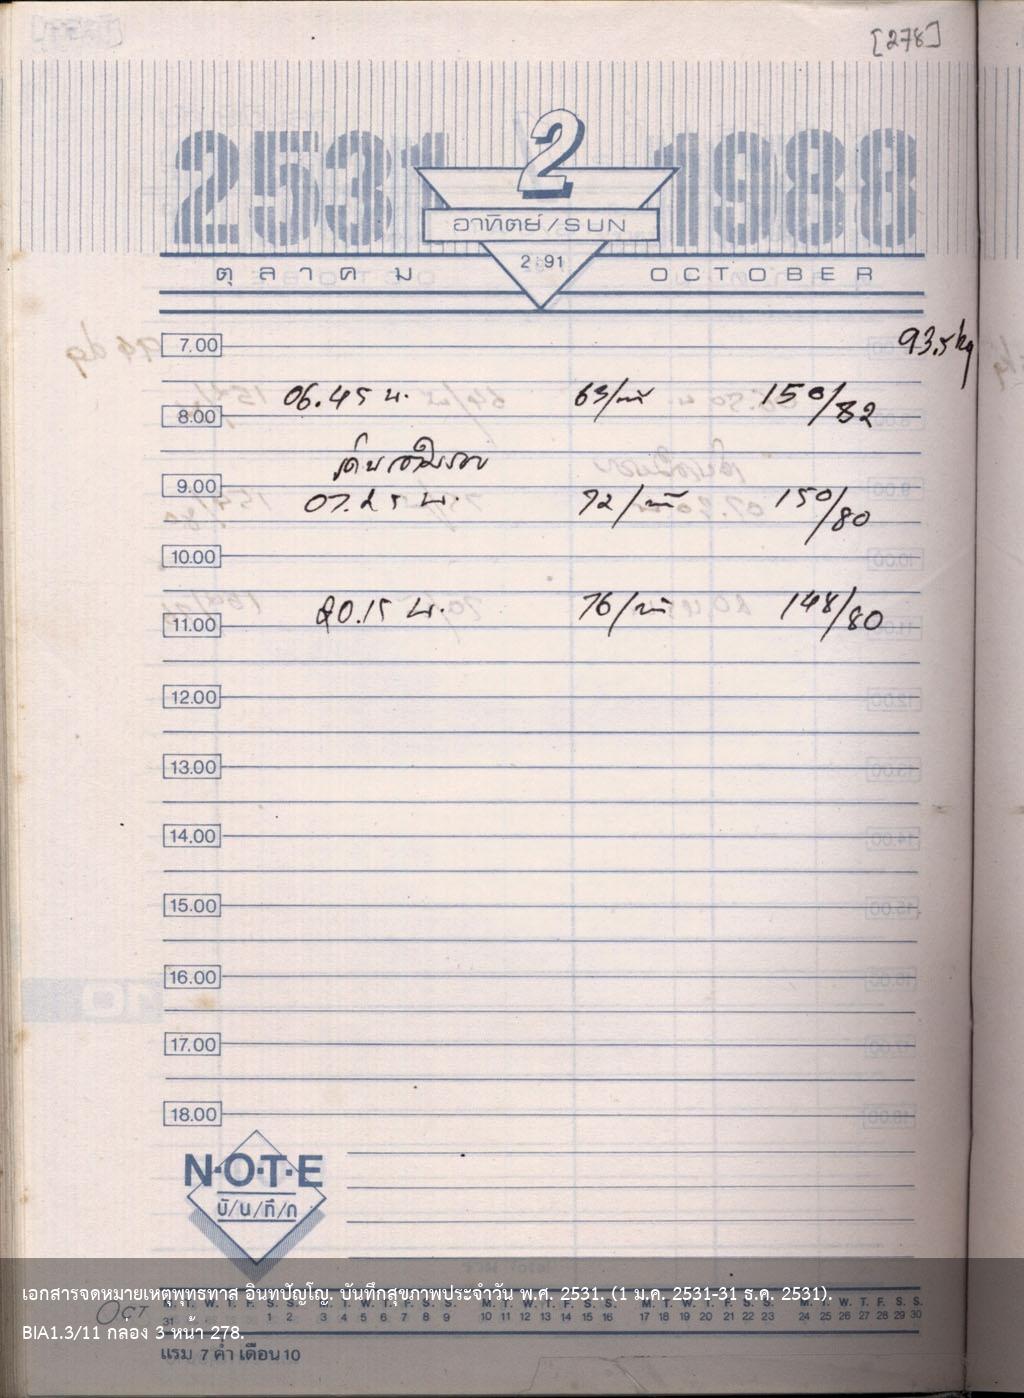 [278]
2531 2 1988
อาทิตย์/SUN
2 91
ตุลาคม OCTOBER
93.5 kg
7.00
06.45 น. 63/นาที 150/82
8.00
9.00
07.25 น. 72/นาที 150/80
10.00
20.15 น. 76/นาที 148/80
11.00
12.00
13.00
14.00
15.00
16.00
17.00
18.00
N·O·T·E
บั/น/ทึ/ก
เอกสารจดหมายเหตุพุทธทาส อินทปัญโญ. บันทึกสุขภาพประจำวัน พ.ศ. 2531. (1 ม.ค. 2531-31 ธ.ค. 2531).
OCT M. T. W. T. F. S. S. M. T. W. T. F. S. S. M. T. W. T. F. S. S. M. T. W. T. F. S. S. M. T. W. T. F. S. S.
31 1 2 3 4 5 6 7 8 9 10 11 12 13 14 15 16 17 18 19 20 21 22 23 24 25 26 27 28 29 30
BIA1.3/11 กล่อง 3 หน้า 278.
แรม 7 ค่ำ เดือน 10